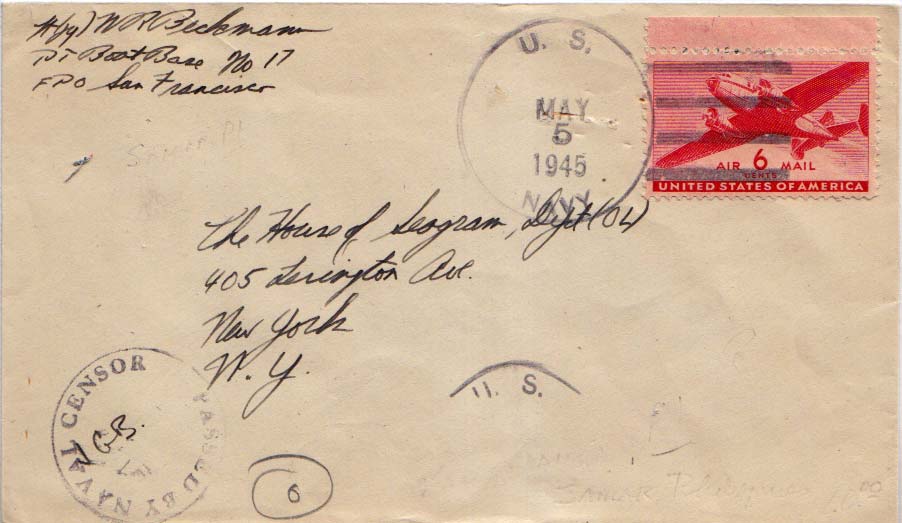 Lt(jg) W R Beckmann
PT Boat Base No 17
FPO San Francisco
U. S.
MAY
5
1945
NAVY
AIR 6 MAIL
CENTS
UNITED STATES OF AMERICA
Samar, PI
The House of Seagram, Dept (OL)
405 Lexington Ave.
New York
N. Y.
PASSED BY NAVAL CENSOR
U. S.
6
SAMAR Philippines